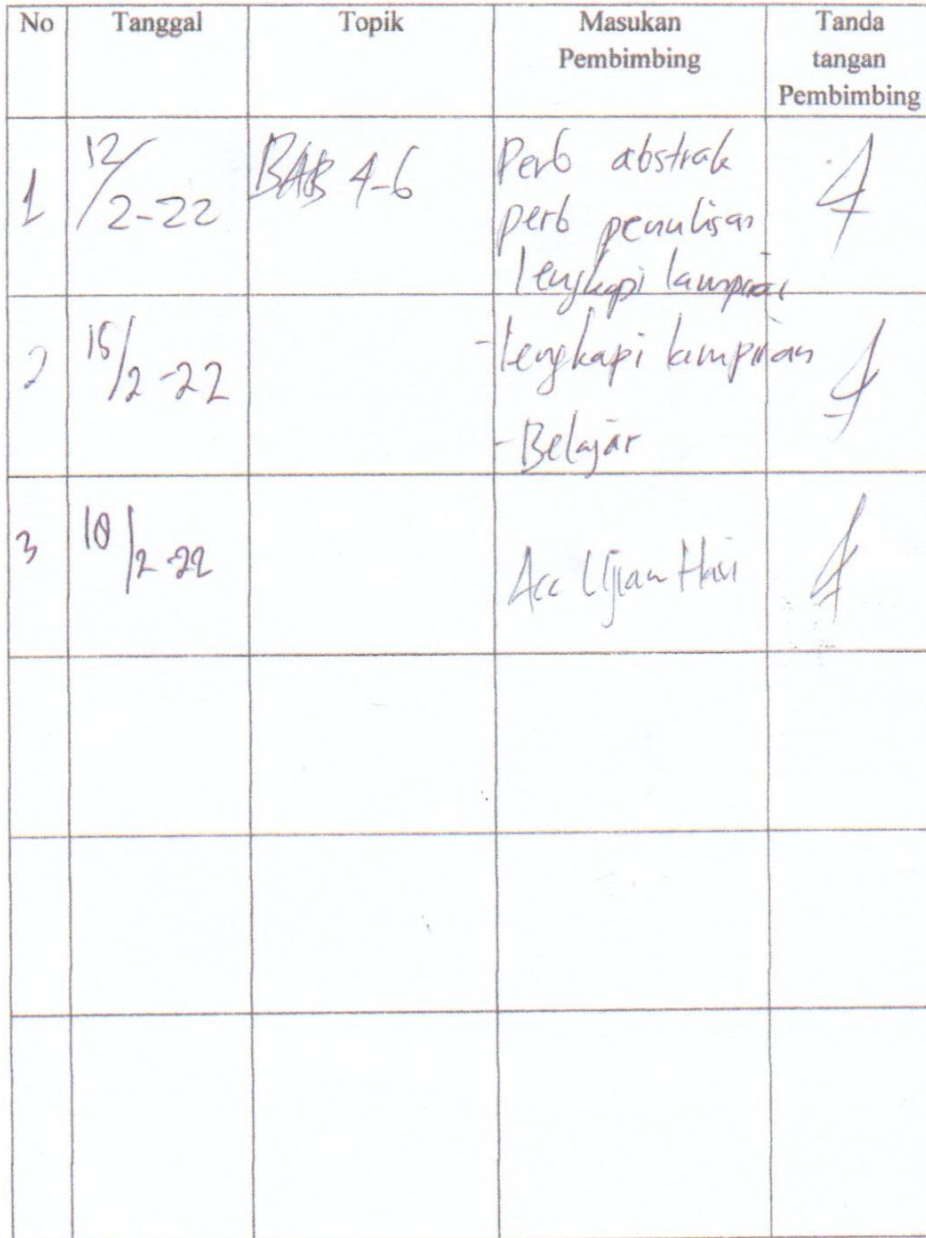 No Tanggal Topik Masukan Pembimbing Tanda tangan Pembimbing
1 12/2-22 BAB 4-6 Perb abstrak
perb penulisan
lengkapi lampiran
2 15/2-22 - lengkapi lampiran
- Belajar
3 /2-22 Acc Ujian Hasil